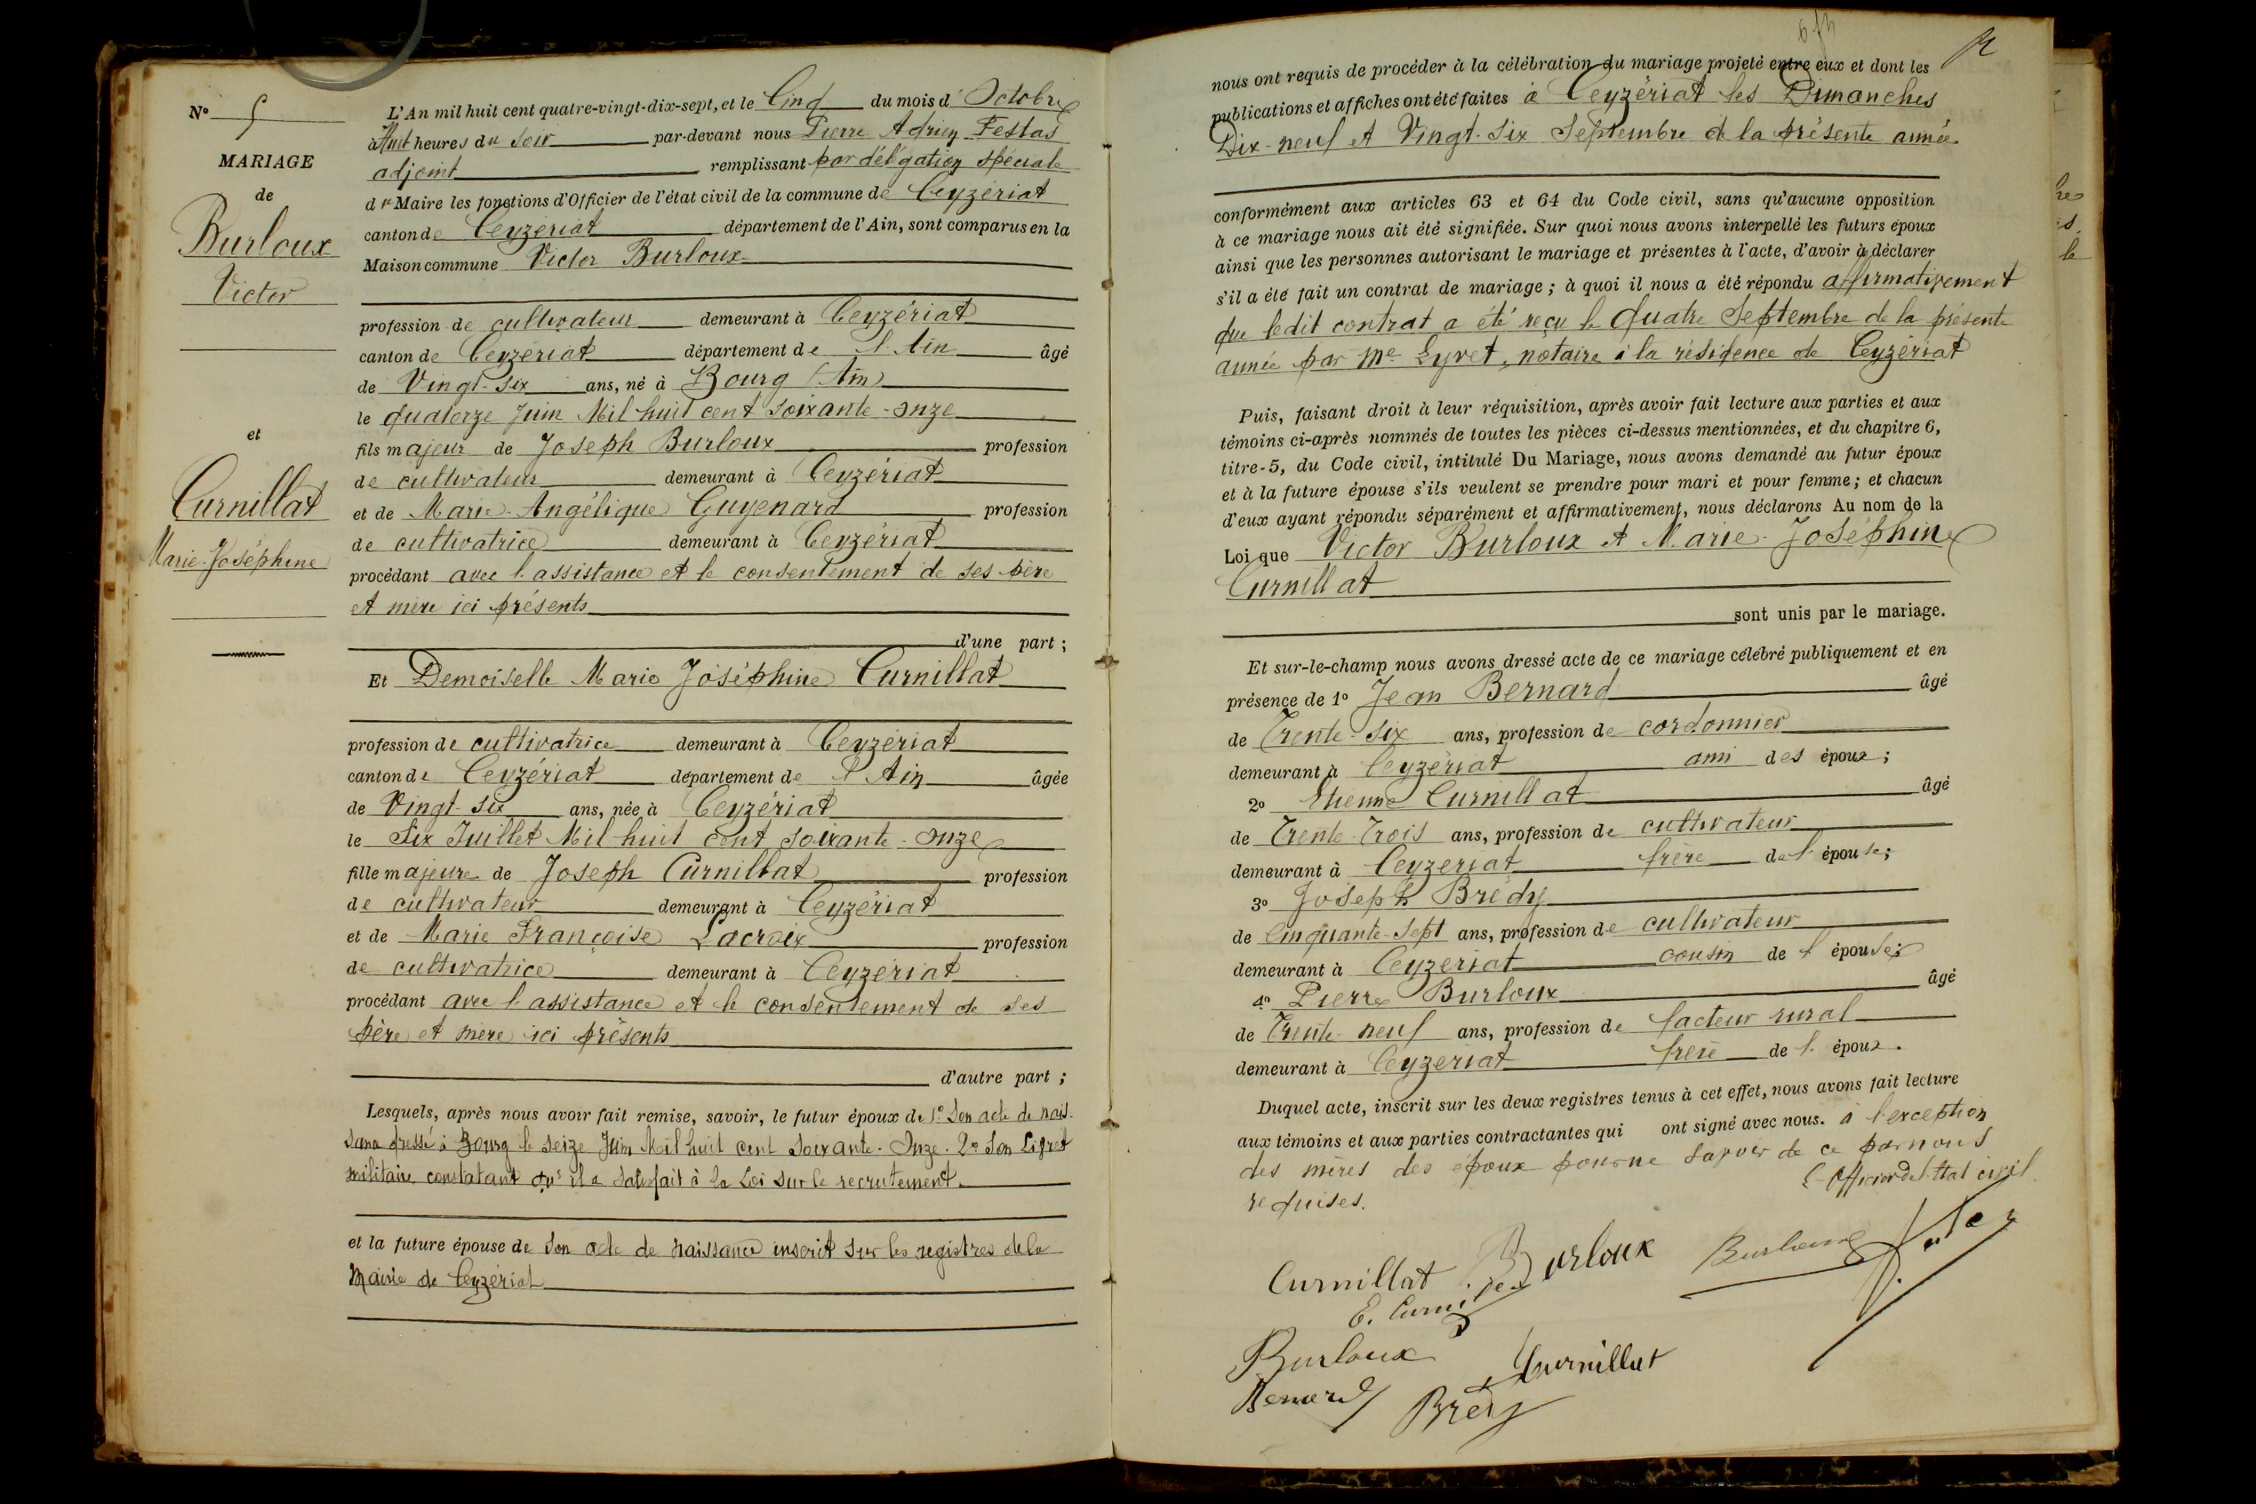 N° 5
MARIAGE
de
Burloux
Victor
et
Curnillat
Marie-Joséphine
L'An mil huit cent quatre-vingt-dix-sept, et le Cinq du mois d' Octobre
à Huit heures du soir par-devant nous Pierre Adrien Festas
adjoint remplissant par délégation spéciale
du Maire les fonctions d'Officier de l'état civil de la commune de Ceyzériat
canton de Ceyzériat département de l'Ain, sont comparus en la
Maison commune Victor Burloux
profession de cultivateur demeurant à Ceyzériat
canton de Ceyzériat département de l'Ain âgé
de Vingt-six ans, né à Bourg (Ain)
le quatorze Juin Mil huit cent soixante-onze
fils majeur de Joseph Burloux profession
de cultivateur demeurant à Ceyzériat
et de Marie-Angélique Guyenard profession
de cultivatrice demeurant à Ceyzériat
procédant avec l'assistance et le consentement de ses père
et mère ici présents
d'une part ;
Et Demoiselle Marie Joséphine Curnillat
profession de cultivatrice demeurant à Ceyzériat
canton de Ceyzériat département de l'Ain âgée
de Vingt-six ans, née à Ceyzériat
le Six Juillet Mil huit cent soixante-onze
fille majeure de Joseph Curnillat profession
de cultivateur demeurant à Ceyzériat
et de Marie Françoise Lacroix profession
de cultivatrice demeurant à Ceyzériat
procédant avec l'assistance et le consentement de ses
père et mère ici présents
d'autre part ;
Lesquels, après nous avoir fait remise, savoir, le futur époux de 1° Son acte de nais-
sance dressé à Bourg le seize Juin Mil huit cent soixante-Onze. 2° Son Livret
militaire constatant qu'il a satisfait à la Loi sur le recrutement.
et la future épouse de Son acte de naissance inscrit sur les registres de la
Mairie de Ceyzériat
nous ont requis de procéder à la célébration du mariage projeté entre eux et dont les
publications et affiches ont été faites à Ceyzériat les Dimanches
Dix-neuf et Vingt-six Septembre de la présente année
conformément aux articles 63 et 64 du Code civil, sans qu'aucune opposition
à ce mariage nous ait été signifiée. Sur quoi nous avons interpellé les futurs époux
ainsi que les personnes autorisant le mariage et présentes à l'acte, d'avoir à déclarer
s'il a été fait un contrat de mariage ; à quoi il nous a été répondu affirmativement
que ledit contrat a été reçu le quatre Septembre de la présente
année par Me Lyvet, notaire à la résidence de Ceyzériat
Puis, faisant droit à leur réquisition, après avoir fait lecture aux parties et aux
témoins ci-après nommés de toutes les pièces ci-dessus mentionnées, et du chapitre 6,
titre-5, du Code civil, intitulé Du Mariage, nous avons demandé au futur époux
et à la future épouse s'ils veulent se prendre pour mari et pour femme ; et chacun
d'eux ayant répondu séparément et affirmativement, nous déclarons Au nom de la
Loi que Victor Burloux et Marie-Joséphine
Curnillat
sont unis par le mariage.
Et sur-le-champ nous avons dressé acte de ce mariage célébré publiquement et en
présence de 1° Jean Bernard âgé
de Trente-six ans, profession de cordonnier
demeurant à Ceyzériat ami des époux ;
2° Etienne Curnillat âgé
de Trente-Trois ans, profession de cultivateur
demeurant à Ceyzeriat frère de l'épouse ;
3° Joseph Brédy
de Cinquante-sept ans, profession de cultivateur
demeurant à Ceyzeriat cousin de l'épouse ;
4° Pierre Burloux âgé
de Trente-neuf ans, profession de facteur rural
demeurant à Ceyzeriat frère de l'époux.
Duquel acte, inscrit sur les deux registres tenus à cet effet, nous avons fait lecture
aux témoins et aux parties contractantes qui ont signé avec nous. à l'exception
des mères des époux pour ne savoir de ce par nous
requises.
L'Officier de l'Etat civil
Curnillat Burloux Burloux
E. Curnillat
Burloux Curnillat
Bernard Brédy